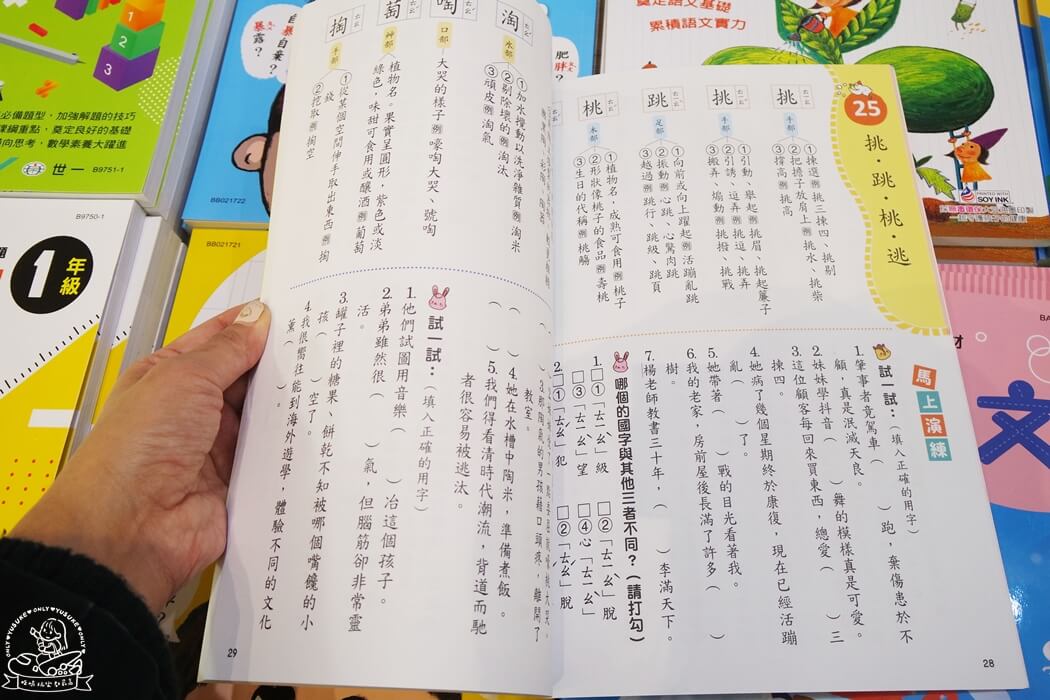 25
挑・跳・桃・逃
挑
手部
①揀選例挑三揀四、挑剔
②把擔子放肩上例挑水、挑柴
③撐高例挑高
挑
手部
①引動、舉起例挑眉、挑起簾子
②引誘、逗弄例挑逗、挑弄
③搬弄、煽動例挑撥、挑戰
跳
足部
①向前或向上躍起例活蹦亂跳
②振動例心跳、心驚肉跳
③越過例跳行、跳級、跳頁
桃
木部
①植物名,成熟可食用例桃子
②形狀像桃子的食品例壽桃
③生日的代稱例桃觴
馬上演練
試一試:(填入正確的用字)
1.肇事者竟駕車( )跑,棄傷患於不
顧,真是泯滅天良。
2.妹妹學抖音( )舞的模樣真是可愛。
3.這位顧客每回來買東西,總愛( )三
揀四。
4.她病了幾個星期終於康復,現在已經活蹦
亂( )了。
5.她帶著( )戰的目光看著我。
6.我的老家,房前屋後長滿了許多( )
樹。
7.楊老師教書三十年,( )李滿天下。
哪個的國字與其他三者不同?(請打勾)
1.□①「ㄊㄧㄠˋ」級 □②「ㄊㄧㄠˋ」脫
□③「ㄊㄧㄠˋ」望 □④心「ㄊㄧㄠˋ」
2.□①「ㄊㄠˊ」犯 □②「ㄊㄠˊ」脫
28
淘
水部
①加水攪動以洗淨雜質例淘米
②剔除壞的例淘汰
③頑皮例淘氣
啕
口部
大哭的樣子例嚎啕大哭、號啕
萄
艸部
植物名。果實呈圓形,紫色或淡
綠色,味甜可食用或釀酒例葡萄
掏
手部
①從某個空間伸手取出東西例掏
錢
②挖取例掏空
教室。
4.她在水槽中陶米,準備煮飯。( )
5.我們得看清時代潮流,背道而馳
者很容易被逃汰。( )
試一試:(填入正確的用字)
1.他們試圖用音樂( )冶這個孩子。
2.弟弟雖然很( )氣,但腦筋卻非常靈
活。
3.罐子裡的糖果、餅乾不知被哪個嘴饞的小
孩( )空了。
4.我很嚮往能到海外遊學,體驗不同的文化
薰( )。
29
必備題型,加強解題的技巧
課綱重點,奠定良好的基礎
世一
B9751-1
B9750-1
1年級
BB021722
BB021721
奠定語文基礎
累積語文實力
PRINTED WITH
SOY INK
ONLY YUSUKE